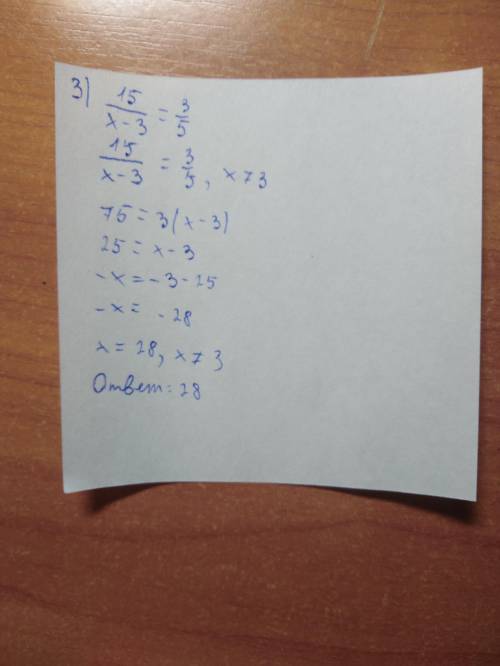 3) 15/(x-3) = 3/5
15/(x-3) = 3/5, x ≠ 3
75 = 3(x-3)
25 = x-3
-x = -3-25
-x = -28
x = 28, x ≠ 3
Ответ: 28